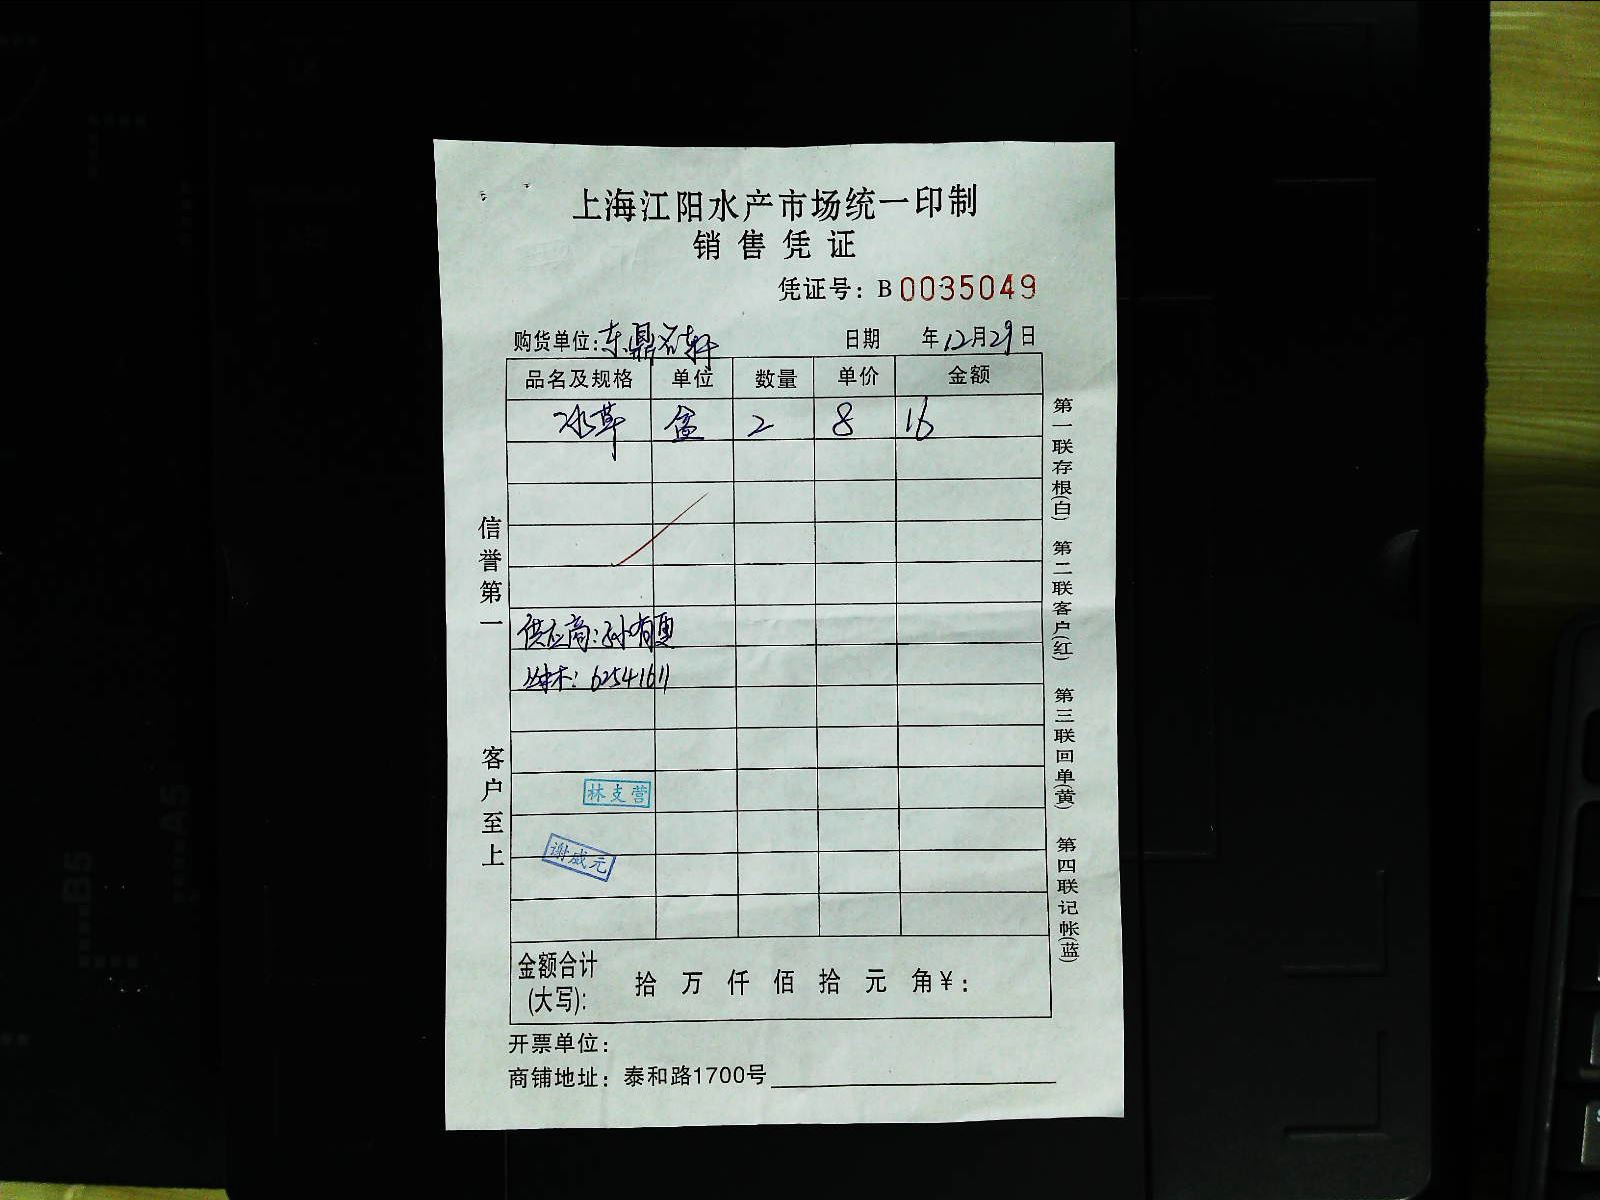 上海江阳水产市场统一印制
销售凭证
凭证号：B 0035049
购货单位:东鼎名轩 日期 年12月29日
品名及规格 单位 数量 单价 金额
冰草 盒 2 8 16
供应商:孙有更
62541611
林支营
谢威元
金额合计
(大写): 拾 万 仟 佰 拾 元 角￥:
开票单位：
商铺地址：泰和路1700号
信誉第一 客户至上
第一联存根(白) 第二联客户(红) 第三联回单(黄) 第四联记帐(蓝)
B5
A5